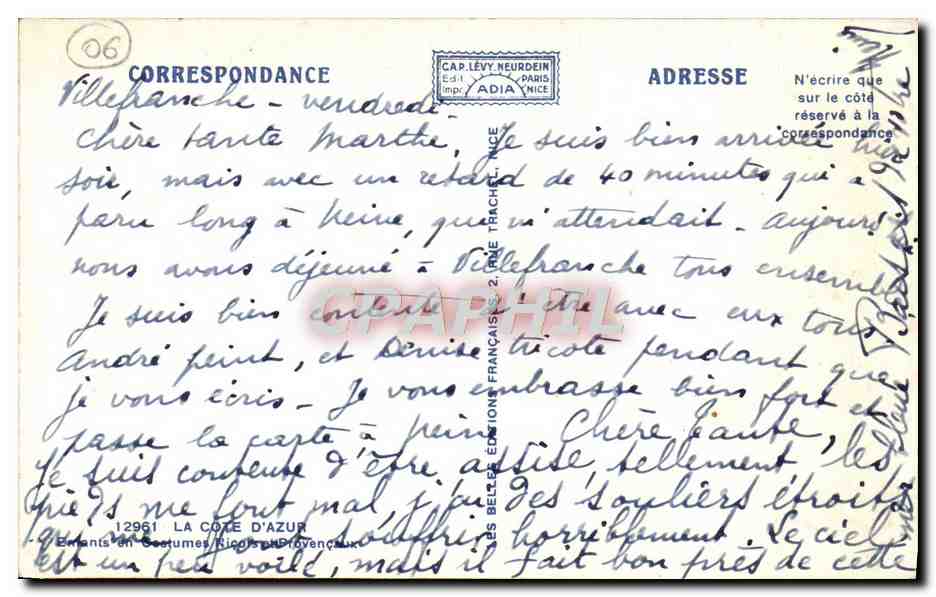 06
CORRESPONDANCE
CAP. LÉVY. NEURDEIN
Edit. PARIS
Impr. ADIA NICE
ADRESSE
N'écrire que
sur le côté
réservé à la
correspondance
Villefranche - vendredi -
Chère tante Marthe, Je suis bien arrivée hier
soir, mais avec un retard de 40 minutes qui a
paru long à Neine, qui m'attendait - aujourd
nous avons déjeuné à Villefranche tous ensemble
Je suis bien contente d'être avec eux tous
André peint, et Denise tricote pendant que
je vous écris - Je vous embrasse bien fort et
passe la carte à Neine Chère Tante,
Je suis contente d'être assise, tellement, les
pieds me font mal, j'ai des souliers étroits
qui me font souffrir horriblement. Le ciel
est un peu voilé, mais il fait bon près de cette
mer bleue
LES BELLES ÉDITIONS FRANÇAISES, 2, RUE TRACHEL, NICE
12961 LA COTE D'AZUR
Enfants en Costumes Niçois et Provençaux
CPAPHIL